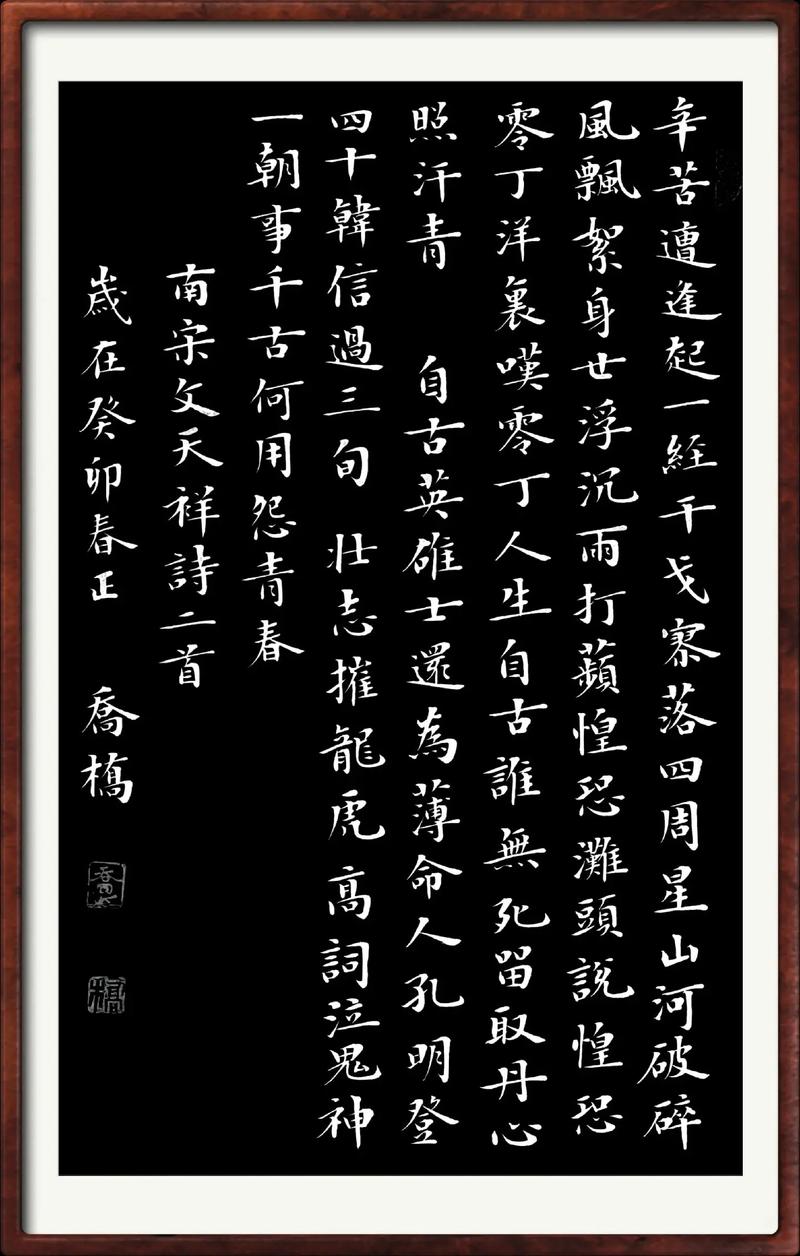 辛苦遭逢起一經干戈寥落四周星山河破碎
風飄絮身世浮沉雨打蘋惶恐灘頭說惶恐
零丁洋裏嘆零丁人生自古誰無死留取丹心
照汗青 自古英雄士還為薄命人孔明登
四十韓信過三旬 壯志摧龍虎高詞泣鬼神
一朝事千古何用怨青春
南宋文天祥詩二首
歲在癸卯春正 喬橋